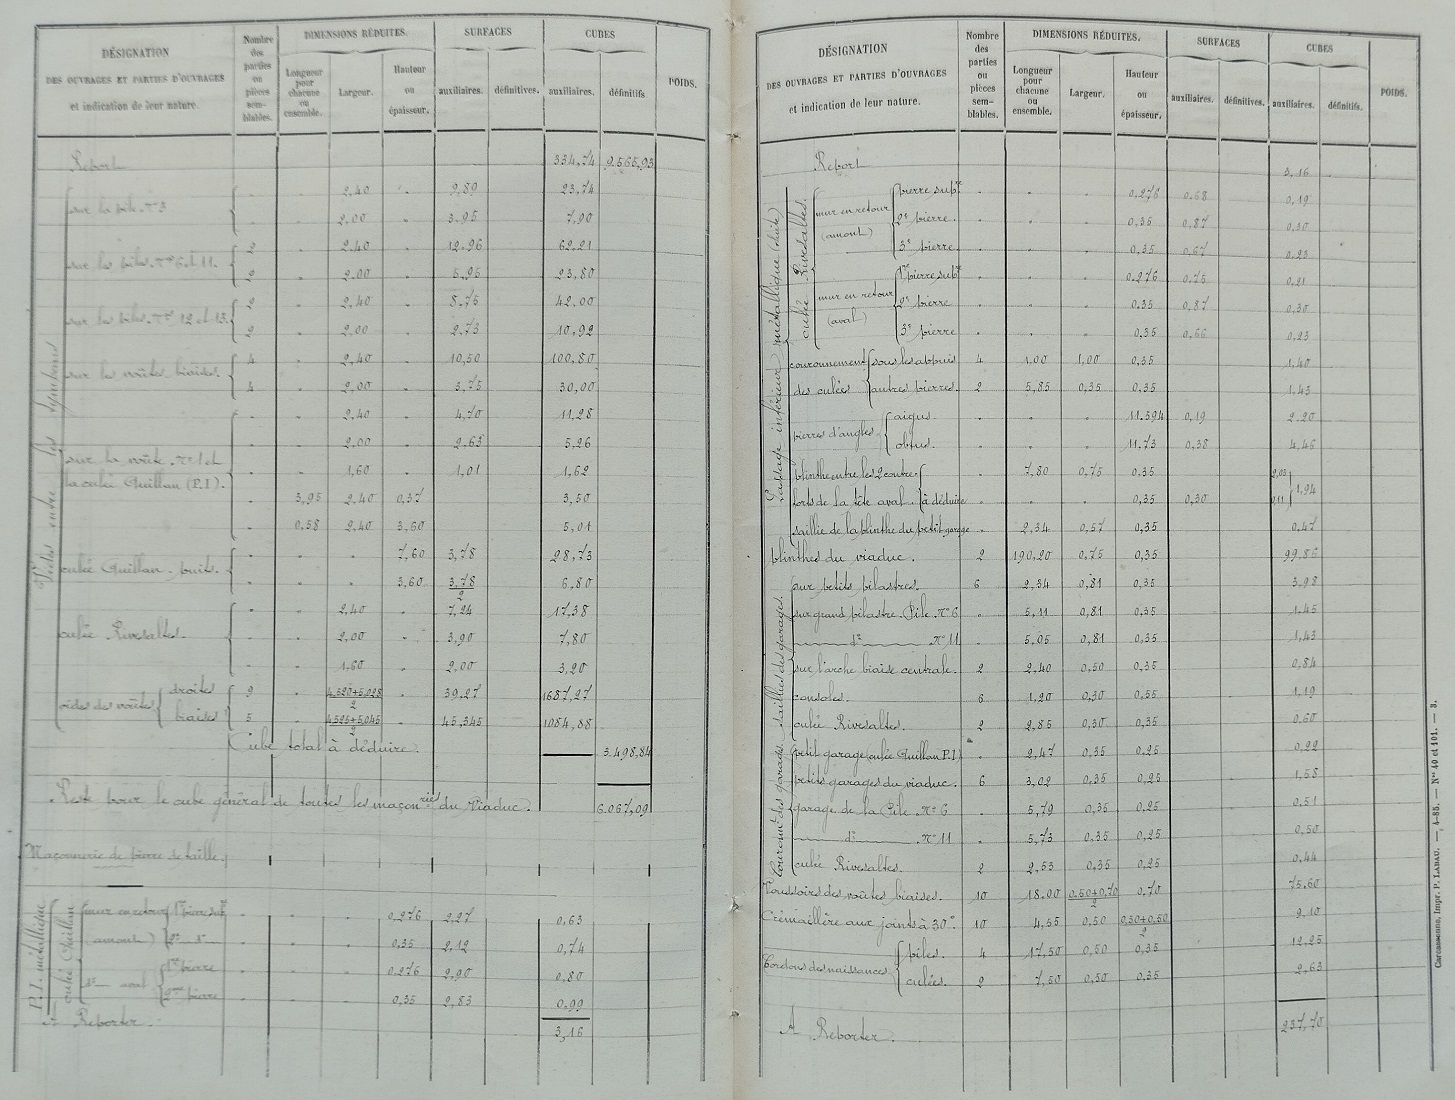 DÉSIGNATION
DES OUVRAGES ET PARTIES D'OUVRAGES
et indication de leur nature.
Nombre des parties ou pièces sem-blables.
DIMENSIONS RÉDUITES.
Longueur pour chacune ou ensemble.
Largeur.
Hauteur ou épaisseur.
SURFACES
auxiliaires.
définitives.
CUBES
auxiliaires.
définitifs
POIDS.
Report 334,74 9.565,93
Vides entre les tympans
sur la pile n° 3 2,40 9,89 23,74
2,00 3,95 7,90
sur les piles nos 6 et 11. 2 2,40 12,96 62,21
2 2,00 5,95 23,80
sur les piles nos 12 et 13. 2 2,40 8,75 42,00
2 2,00 2,73 10,92
sur les voûtes biaises. 4 2,40 10,50 100,80
4 2,00 3,75 30,00
2,40 4,70 11,28
2,00 2,63 5,26
sur la voûte n° 1 et 1,60 1,01 1,62
la culée Quillan (P.I).
3,95 2,40 0,37 3,50
0,58 2,40 3,60 5,01
culée Quillan puits. 7,60 3,78 28,73
3,60 3,78/2 6,80
2,40 7,24 17,38
culée Rivesaltes. 2,00 3,90 7,80
1,60 2,00 3,20
vides des voûtes droites 9 4,520+5,028/2 39,27 1687,27
biaises 5 4,525+5,045/2 45,345 1084,88
Cube total à déduire. 3.498,84
Reste pour le cube général de toutes les maçonries du Viaduc. 6.067,09
Maçonnerie de pierre de taille.
P.I. métallique
culée Quillan
mur en retour 1re pierre supre 0,276 2,27 0,63
(amont) 2e do 0,35 2,12 0,74
do aval 1re pierre 0,276 2,90 0,80
2me pierre 0,35 2,83 0,99
A Reporter. 3,16
DÉSIGNATION
DES OUVRAGES ET PARTIES D'OUVRAGES
et indication de leur nature.
Nombre des parties ou pièces sem-blables.
DIMENSIONS RÉDUITES.
Longueur pour chacune ou ensemble.
Largeur.
Hauteur ou épaisseur.
SURFACES
auxiliaires.
définitives.
CUBES
auxiliaires.
définitifs.
POIDS.
Report 3,16
Passage inférieur métallique (suite)
culée Rivesaltes.
mur en retour (amont) 1re pierre supre 0,276 0,68 0,19
2e pierre. 0,35 0,87 0,30
3e pierre. 0,35 0,67 0,23
mur en retour (aval) 1re pierre supre 0,276 0,75 0,21
2e pierre 0,35 0,87 0,30
3e pierre 0,35 0,66 0,23
couronnement sous les appuis 4 1,00 1,00 0,35 1,40
des culées autres pierres. 2 5,85 0,35 0,35 1,43
pierres d'angles aigus. 11.594 0,19 2,20
obtus. 11,73 0,38 4,46
plinthe entre les 2 contre- 7,80 0,75 0,35 2,05
forts de la tête aval. à déduire 0,35 0,30 0,11 1,94
saillie de la plinthe du petit garage 2,34 0,57 0,35 0,47
Plinthes du viaduc. 2 190,20 0,75 0,35 99,86
saillies des garages.
sur petits pilastres. 6 2,34 0,81 0,35 3,98
sur grand pilastre Pile n° 6 5,11 0,81 0,35 1,45
do n° 11 5,05 0,81 0,35 1,43
sur l'arche biaise centrale. 2 2,40 0,50 0,35 0,84
consoles. 6 1,20 0,30 0,55 1,19
culée Rivesaltes. 2 2,85 0,30 0,35 0,60
Couronnt des garages.
petit garage (culée Quillan P.I) 2,47 0,35 0,25 0,22
petits garages du viaduc. 6 3,02 0,35 0,25 1,58
garage de la Pile n° 6 5,79 0,35 0,25 0,51
do n° 11 5,73 0,35 0,25 0,50
culée Rivesaltes. 2 2,53 0,35 0,25 0,44
Voussoirs des voûtes biaises. 10 18,00 0,50+0,70/2 0,70 75,60
Crémaillère aux joints à 30° 10 4,55 0,50 0,30+0,50/2 9,10
Cordons des naissances piles. 4 17,50 0,50 0,35 12,25
culées. 2 7,50 0,50 0,35 2,63
A Reporter. 237,70
Carcassonne, Impr. P. LABAU. — 4-85. — Nos 40 et 101. — 3.